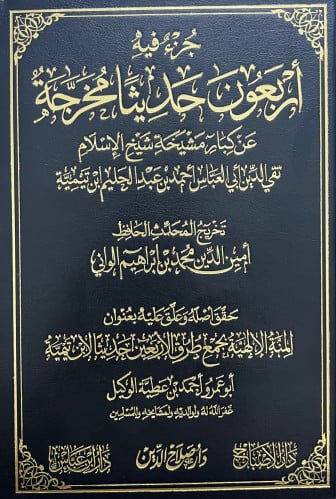 جُزْءٌ فِيهِ
أَرْبَعُونَ حَدِيثًا مُخَرَّجَةً
عَنْ كِبَارِ مَشْيَخَةِ شَيْخِ الإِسْلَامِ
تقي الدين أبي العباس أحمد بن عبد الحليم ابن تيمية
تخريج المحدث الحافظ
أمين الدين محمد بن إبراهيم الواني
حقق أصله وعلق عليه بعنوان
المنة الإلهية بجمع طرق الأربعين حديثا لابن تيمية
أبو عمرو أحمد بن عطية الوكيل
غفر الله له ولوالديه ولمشايخه وللمسلمين
دار ابن عباس
دار صلاح الدين